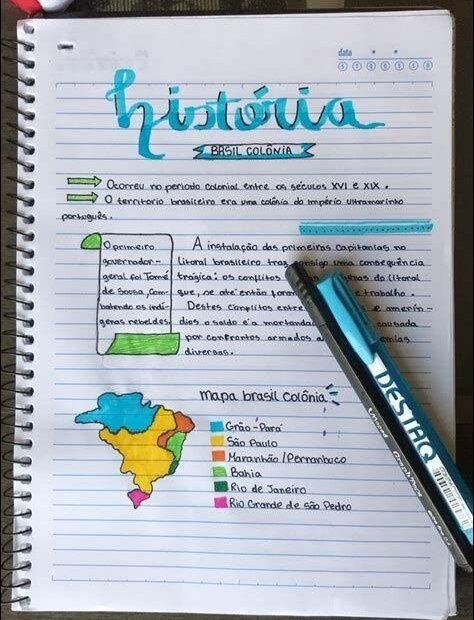 data
história
BRSIL COLÔNIA
Ocorreu no período colonial entre os séculos XVI e XIX.
O território brasileiro era uma colônia do império ultramarinto
português.
O primeiro
governador-
geral foi Tomé
de Sousa, com-
batendo os indí-
genas rebeldes
A instalação das primeiras capitanias no
litoral brasileiro traz consigo uma consequência
trágica: os conflitos genas do litoral
que, se até então foram trabalho.
Destes conflitos entre e amerín-
dios o saldo é a mortandad causada
por confrontos armados e emias
diversas.
mapa brasil colônia
Grão-Pará
São Paulo
Maranhão/Pernambuco
Bahia
Rio de Janeiro
Rio Grande de São Pedro
DESTAQ